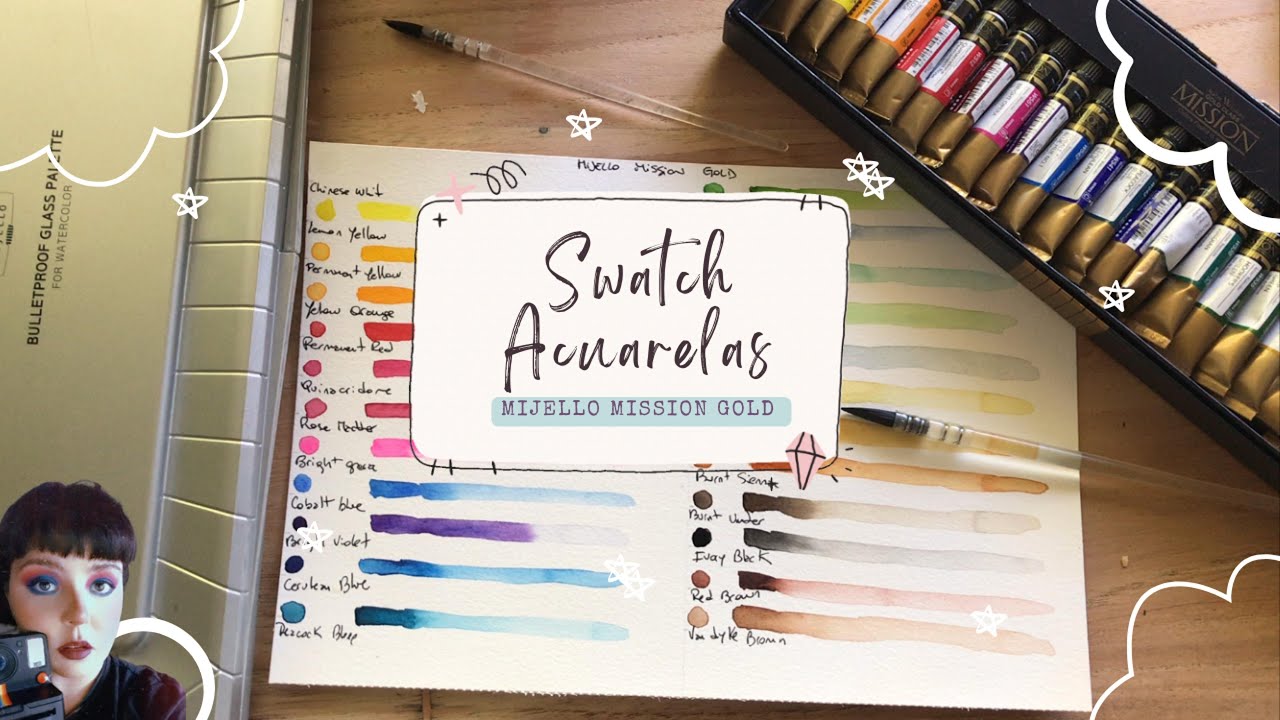 BULLETPROOF GLASS PALETTE
FOR WATERCOLOR
MISSION
MIJELLO MISSION GOLD
Chinese Whit
Lemon Yellow
Permanent Yellow
Yellow Orange
Permanent Red
Quinacridone
Rose Madder
Bright
Cobalt Blue
Bright Violet
Cerulean Blue
Peacock Blue
Swatch
Acuarelas
MIJELLO MISSION GOLD
Burnt Sienna
Burnt Umber
Ivory Black
Red Brown
Van dyke Brown